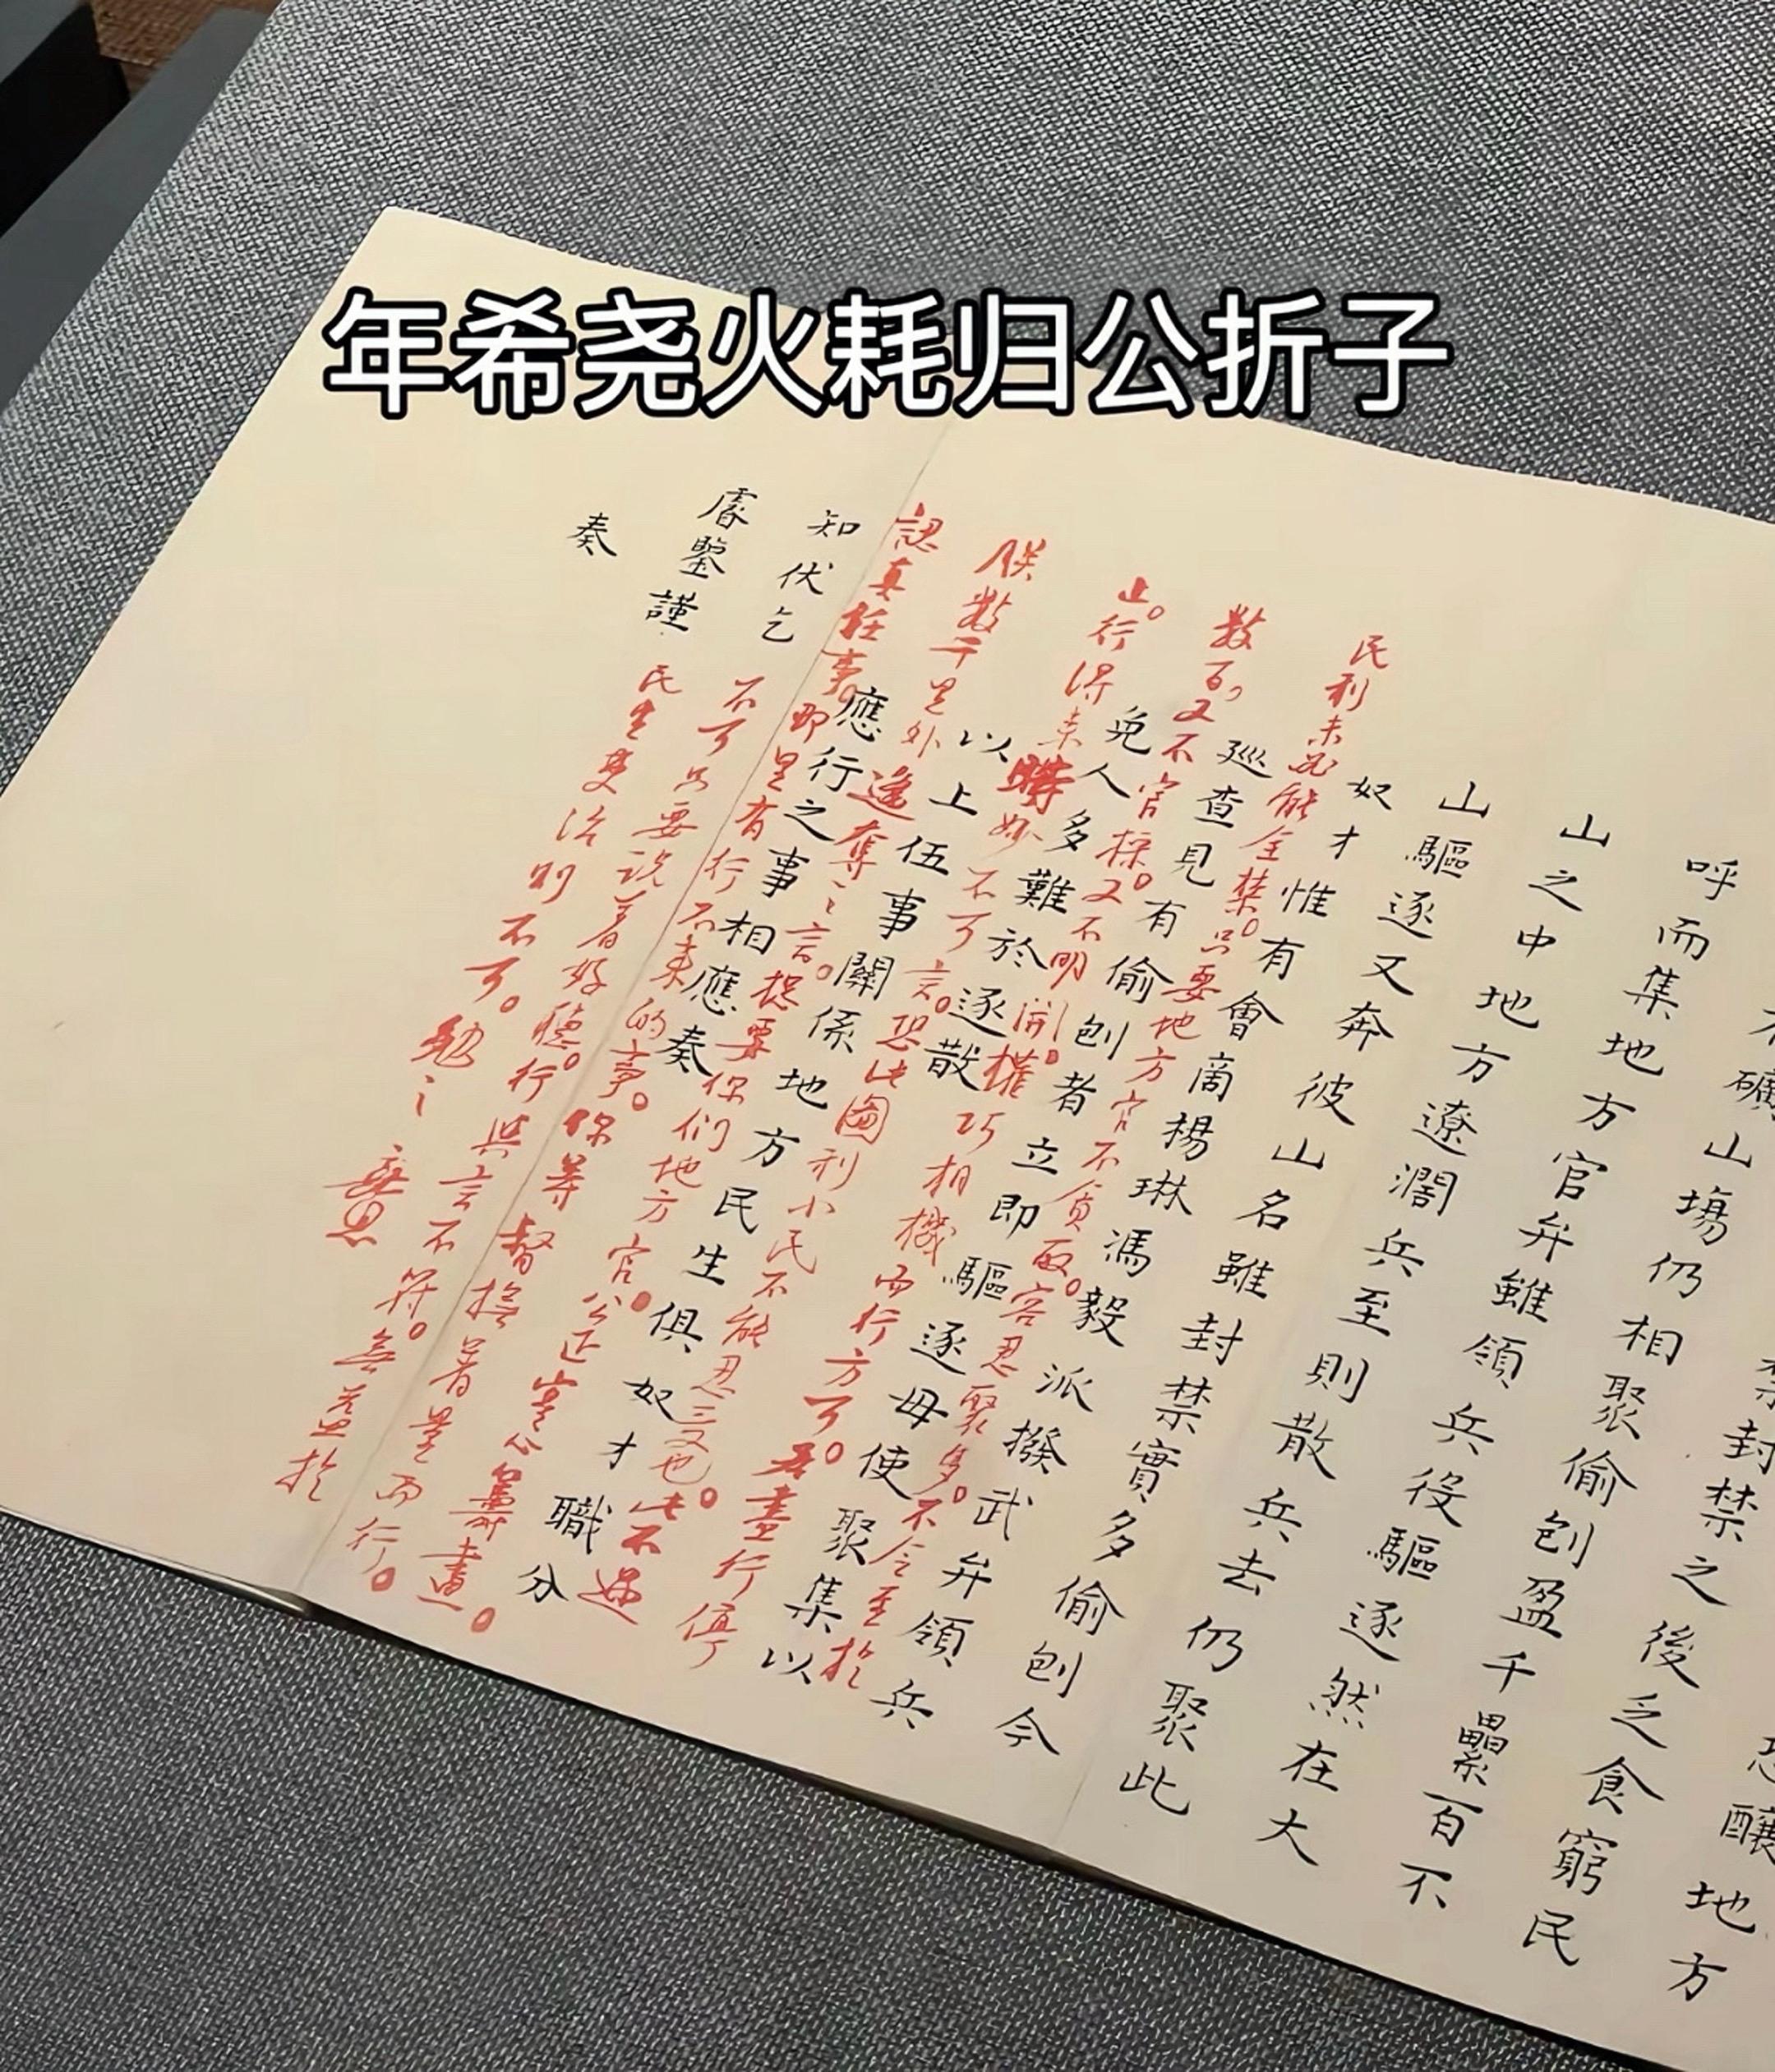 年希尧火耗归公折子
恐釀地方
禁封禁之後乏食窮民
不礦山塲仍相聚偷刨盈千累百不
呼而集地方官弁雖領兵役驅逐然在大
山之中地方遼濶兵至則散兵去仍聚此
山驅逐又奔彼山名雖封禁實多偷刨今
奴才惟有會商楊琳馮毅派撥武弁領兵
巡查見有偷刨者立即驅逐毋使聚集以
免人多難於逐散
以上伍事關係地方民生俱奴才職分
應行之事相應奏
知伏乞
睿鑒謹
奏
民利未必能全禁。只要地方官不貪取。容忍聚多。不令至於
数百,又不官採。又不明開。權巧相機而行方可。若盡行停
止。行得来時妙不可言。恐此圖利小民不能忍受也。此不過
朕数千里外遙奪之言。總要你们地方官。公正寔心籌畫。
認真任事。即是有行不来的事。你等督撫著量而行。
不可只要说着好聽。行與言不符。無益於
民生吏治則不可。勉之